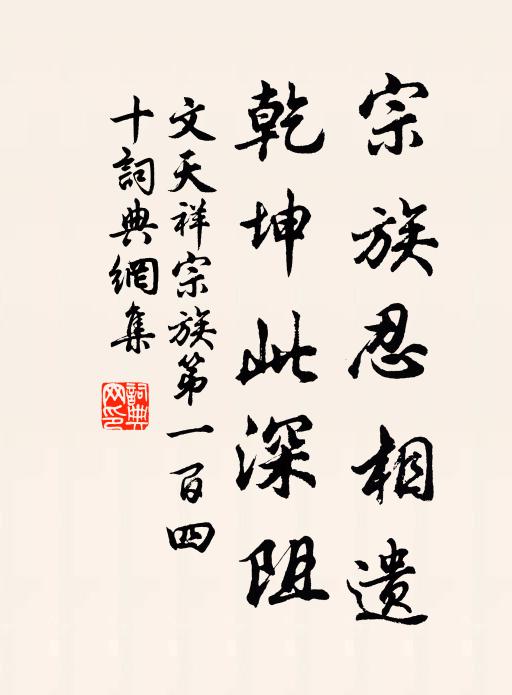 宗族忍相遺
乾坤此深阻
文天祥宗族第一百四
十詞典網集
詞典
网印